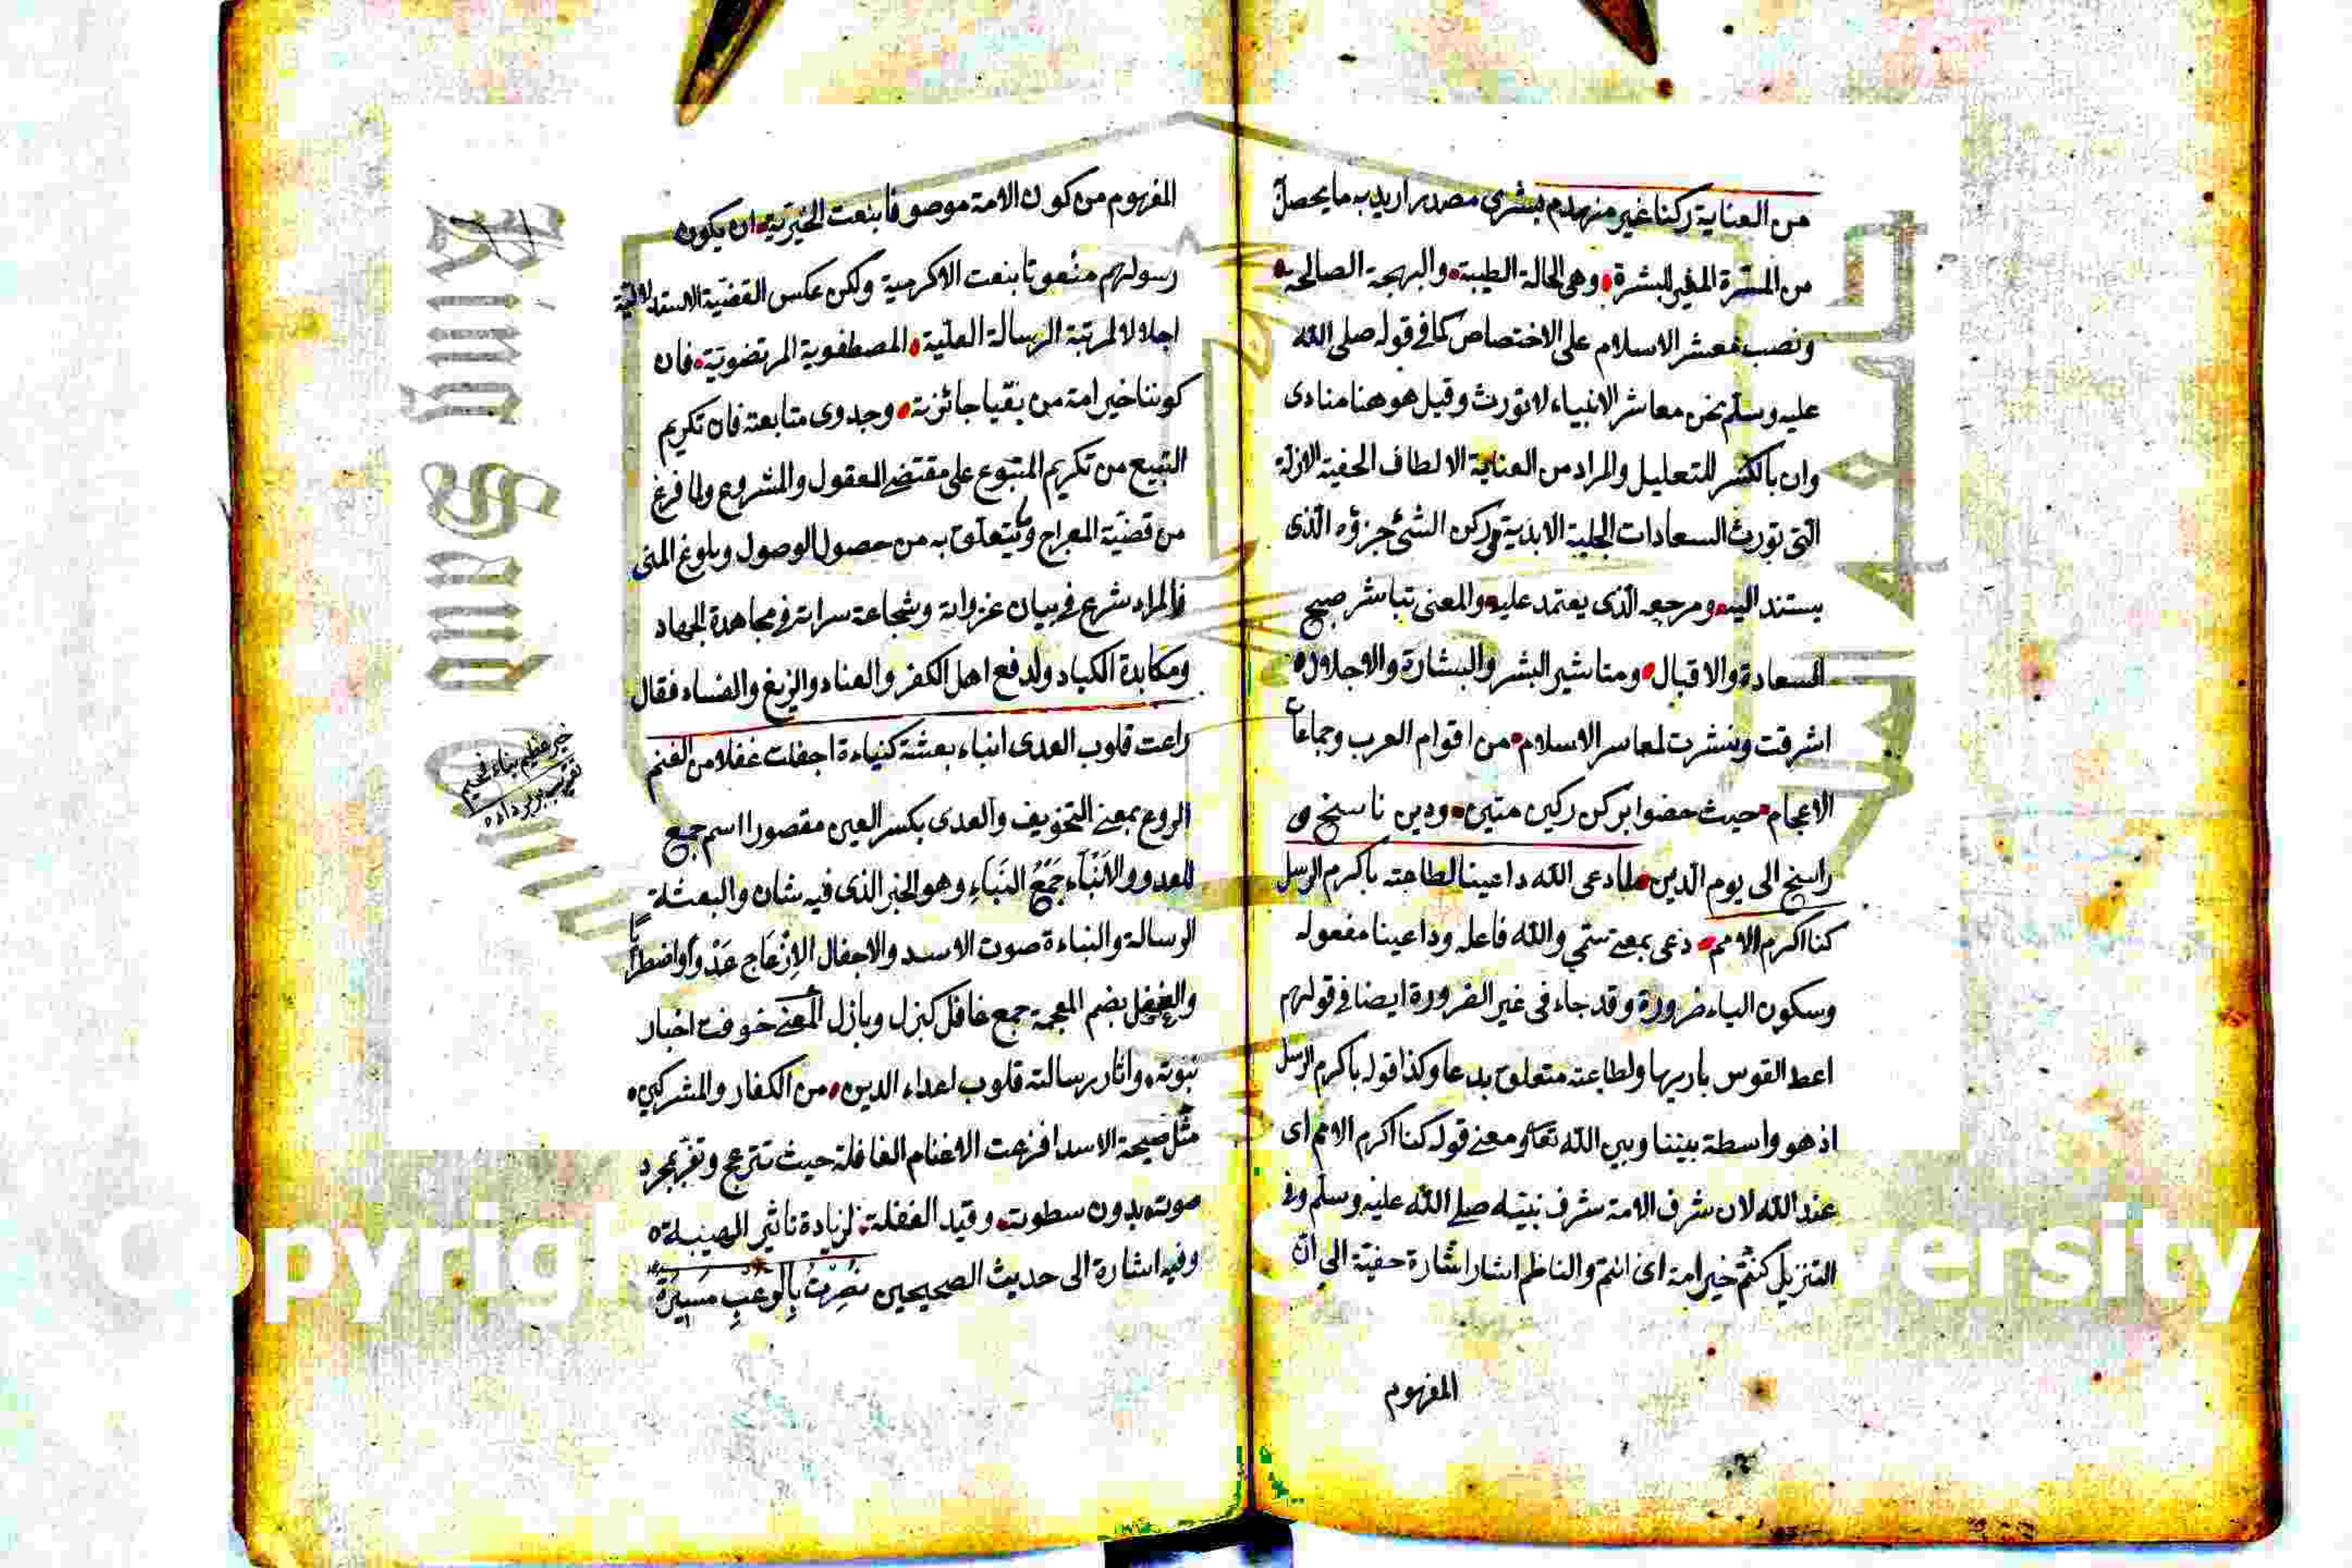 من العناية ركنا غير منهدم بشرى مصدر اريد به ما يحصل
من المسرة المغير للبشرة وهى الحالة الطيبة والبهجة الصالحة
ونصب معشر الاسلام على الاختصاص كما فى قوله صلى الله
عليه وسلم نحن معاشر الانبياء لا نورث وقيل هو هنا منادى
وان بالكسر للتعليل والمراد من العناية الالطاف الحفية الازلة
التى تورث السعادات الجلية الابدية وركن الشئ جزؤه الذى
يستند اليه ومرجعه الذى يعتمد عليه والمعنى تباشر صبح
السعادة والاقبال ومتاشير البشر والبشارة والاجلال
اشرقت ونشرت لمعاسر الاسلام من اقوام العرب وجماعات
الاعجام حيث حضوا بركن ركين متين ودين ناسخ و
راسخ الى يوم الدين لما دعى الله داعينا لطاعته باكرم الرسل
كنا اكرم الامم دعى بمعنى سمي والله فاعله وداعينا مفعوله
وسكون الياء ضرورة وقد جاء فى غير الضرورة ايضا فى قولهم
اعط القوس باريها ولطاعته متعلق بدعا وكذا قوله باكرم الرسل
اذ هو واسطة بيننا وبين الله تعا ومعنى قوله كنا اكرم الامم اى
عند الله لان شرف الامة شرف نبيه صلى الله عليه وسلم وفى
التنزيل كنتم خير امة اى انتم والناظم اشار اشارة حفية الى ان
المفهوم
المفهوم من كون الامة موصوفا بنعت الخيرية ان يكون
رسولهم منعوتا بنعت الاكرمية ولكن عكس القضية الاستدلالية
اجلالا لمرتبة الرسالة العلية المصطفوية المرتضوية فان
كوننا خير امة من بقيا جائزته وجدوى متابعته فان تكريم
التبيع من تكريم المتبوع على مقتضى المعقول والمشروع ولما فرغ
من قضية المعراج وما يتعلق به من حصول الوصول وبلوغ المنى
والمراد شرع فى بيان غزواته وشجاعة سراته فى مجاهدة الجهاد
ومكابدة الكباد ولدفع اهل الكفر والعناد والزيغ والفساد فقال
راعت قلوب العدى انباء بعثته كنباءة اجفلت غفلا من الغنم
الروع بمعنى التخويف والعدى بكسر العين مقصورا اسم جمع
للعدو والانباء جمع النباء وهو الخبر الذى فيه شان والبعثة
الرسالة والنباءة صوت الاسد والاجفال الازعاج عدوا واضطرابا
والغفل بضم المعجمة جمع غافل كنزل وبازل المعنى خوفت اخبار
نبوته واثار رسالته قلوب اعداء الدين من الكفار والمشركين
مثل صيحة الاسد افزعت الاغنام الغافلة حيث تنزعج وتفر بمجرد
صوته بدون سطوته وقيد الغفلة لزيادة تاثير المصيبة
وفيه اشارة الى حديث الصحيحين نصرت بالرعب مسيرة
King Saud
Copyrig
ersity